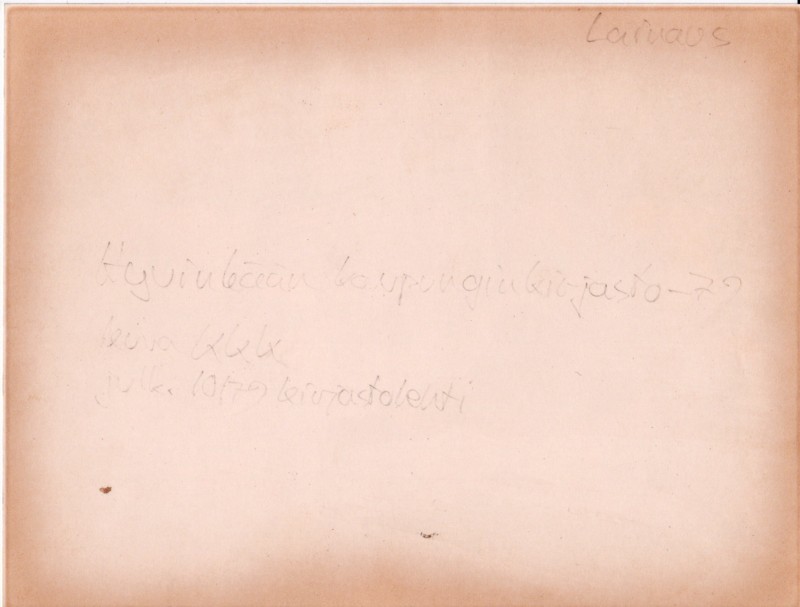 Lainaus
Hyvinkään kaupunginkirjasto -79
kuva KKK
julk. 10/79 kirjastolehti